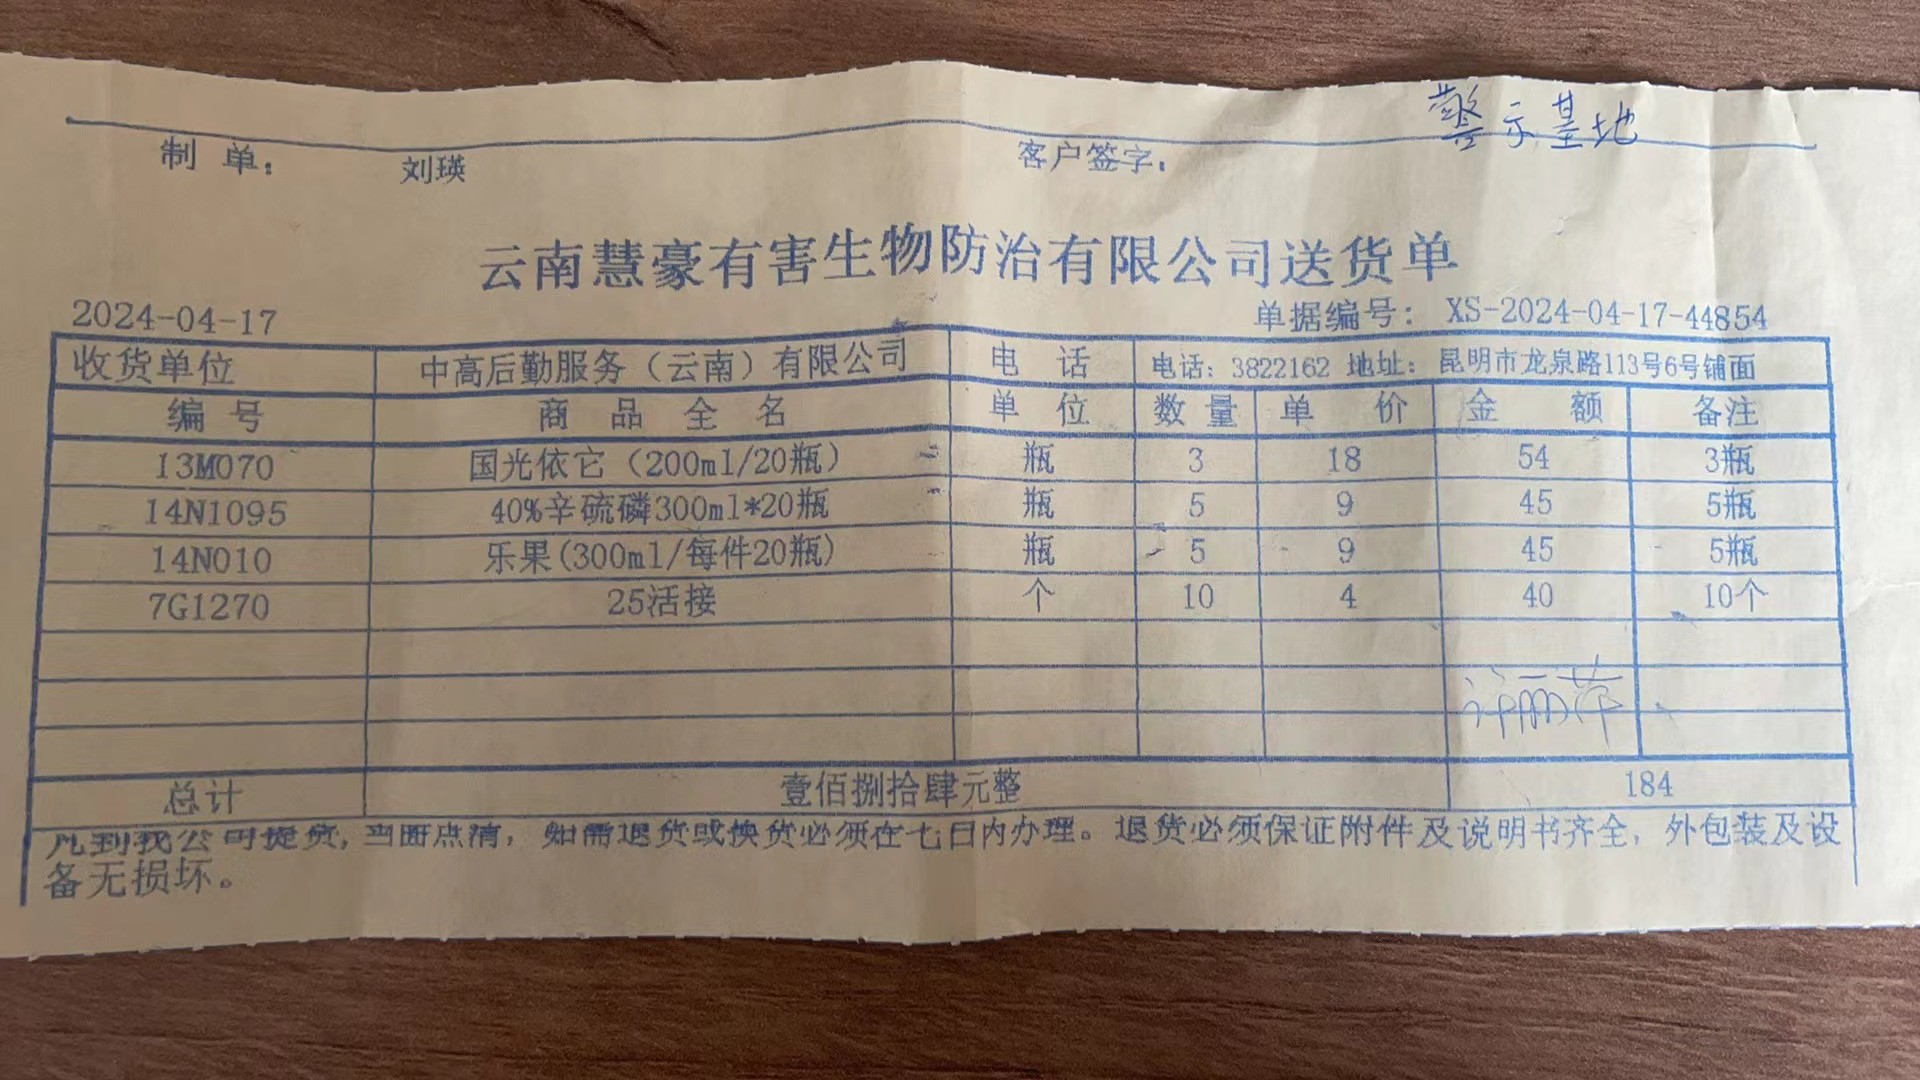 警示基地
制 单： 刘瑛 客户签字：
云南慧豪有害生物防治有限公司送货单
2024-04-17 单据编号： XS-2024-04-17-44854
收货单位 中高后勤服务（云南）有限公司 电 话 电话：3822162 地址：昆明市龙泉路113号6号铺面
编 号 商 品 全 名 单 位 数 量 单 价 金 额 备注
13M070 国光依它（200ml/20瓶） 瓶 3 18 54 3瓶
14N1095 40%辛硫磷300ml*20瓶 瓶 5 9 45 5瓶
14N010 乐果(300ml/每件20瓶) 瓶 5 9 45 5瓶
7G1270 25活接 个 10 4 40 10个
许丽萍
总计 壹佰捌拾肆元整 184
凡到我公司提货，当面点清，如需退货或换货必须在七日内办理。退货必须保证附件及说明书齐全，外包装及设
备无损坏。